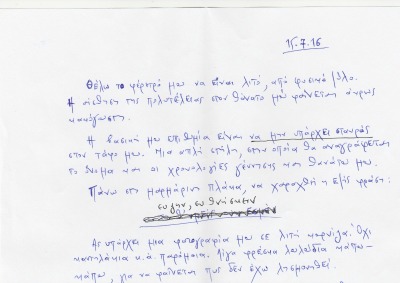 15.7.16
Θέλω το φέρετρό μου να είναι λιτό, από φυσικό ξύλο.
Η αίσθηση της πολυτέλειας στον θάνατο μου φαίνεται άκρως
κακόγουστη.
Η βασική μου επιθυμία είναι να μην υπάρχει σταυρός
στον τάφο μου. Μια απλή στήλη, στην οποία θα αναγράφεται
το όνομα και οι χρονολογίες γέννησης και θανάτου μου.
Πάνω στη μαρμάρινη πλάκα, να χαραχθή η εξής φράση:
ευ ζην, ευ θνήσκειν
Ας υπάρχει μια φωτογραφία μου σε λιτή κορνίζα. Όχι
καντηλάκια κ.ά. παρόμοια. Λίγα φρέσκα λουλούδια κάπου-
κάπου, για να φαίνεται πως δεν έχω λησμονηθεί.